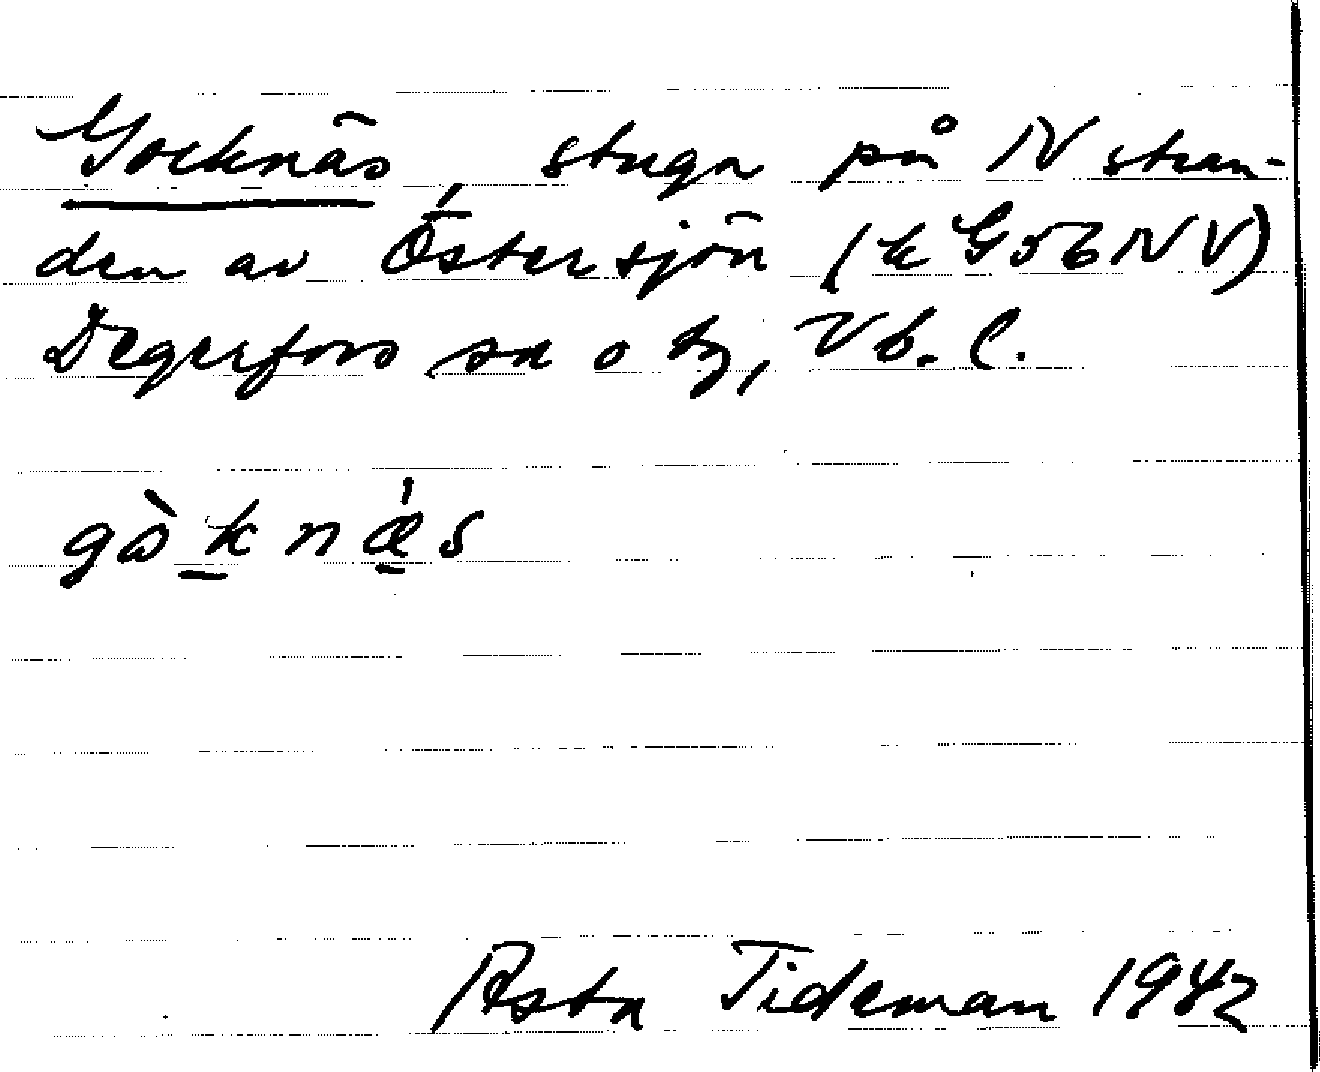 Gocknäs, stuga på N stran-
den av Östersjön (k G56NV)
Degerfors sn o hd, Vb. l.
gòknǽs
Asta Tideman 1942